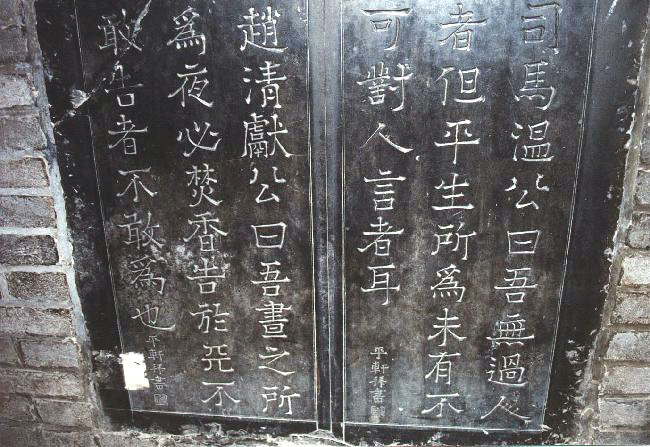 司馬温公曰吾無過人
者但平生所爲未有不
可對人言者耳
平軒拜書
趙清獻公曰吾晝之所
爲夜必焚香告於天不
敢告者不敢爲也
平軒拜書